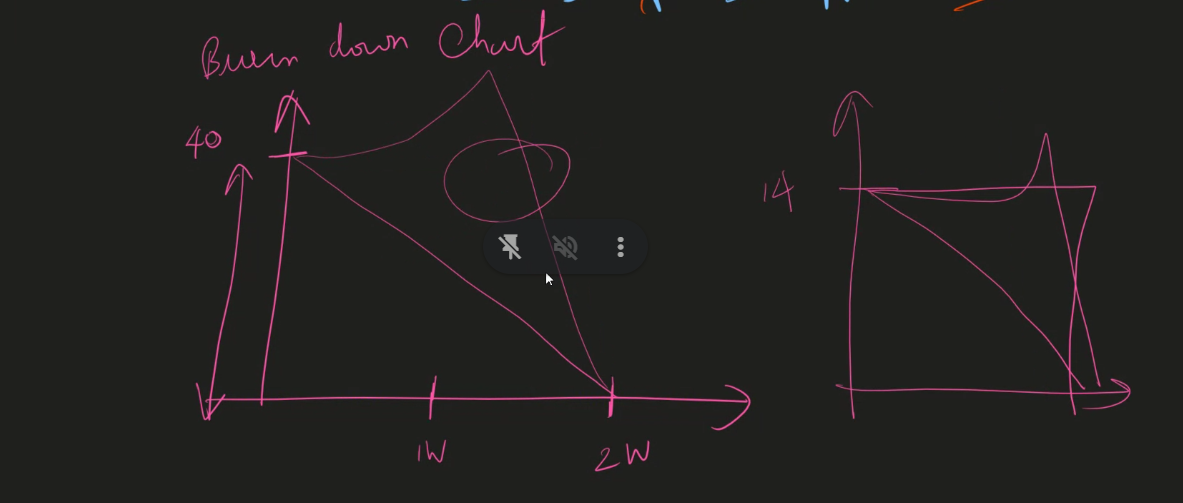 Burn down Chart
40
14
1W
2W